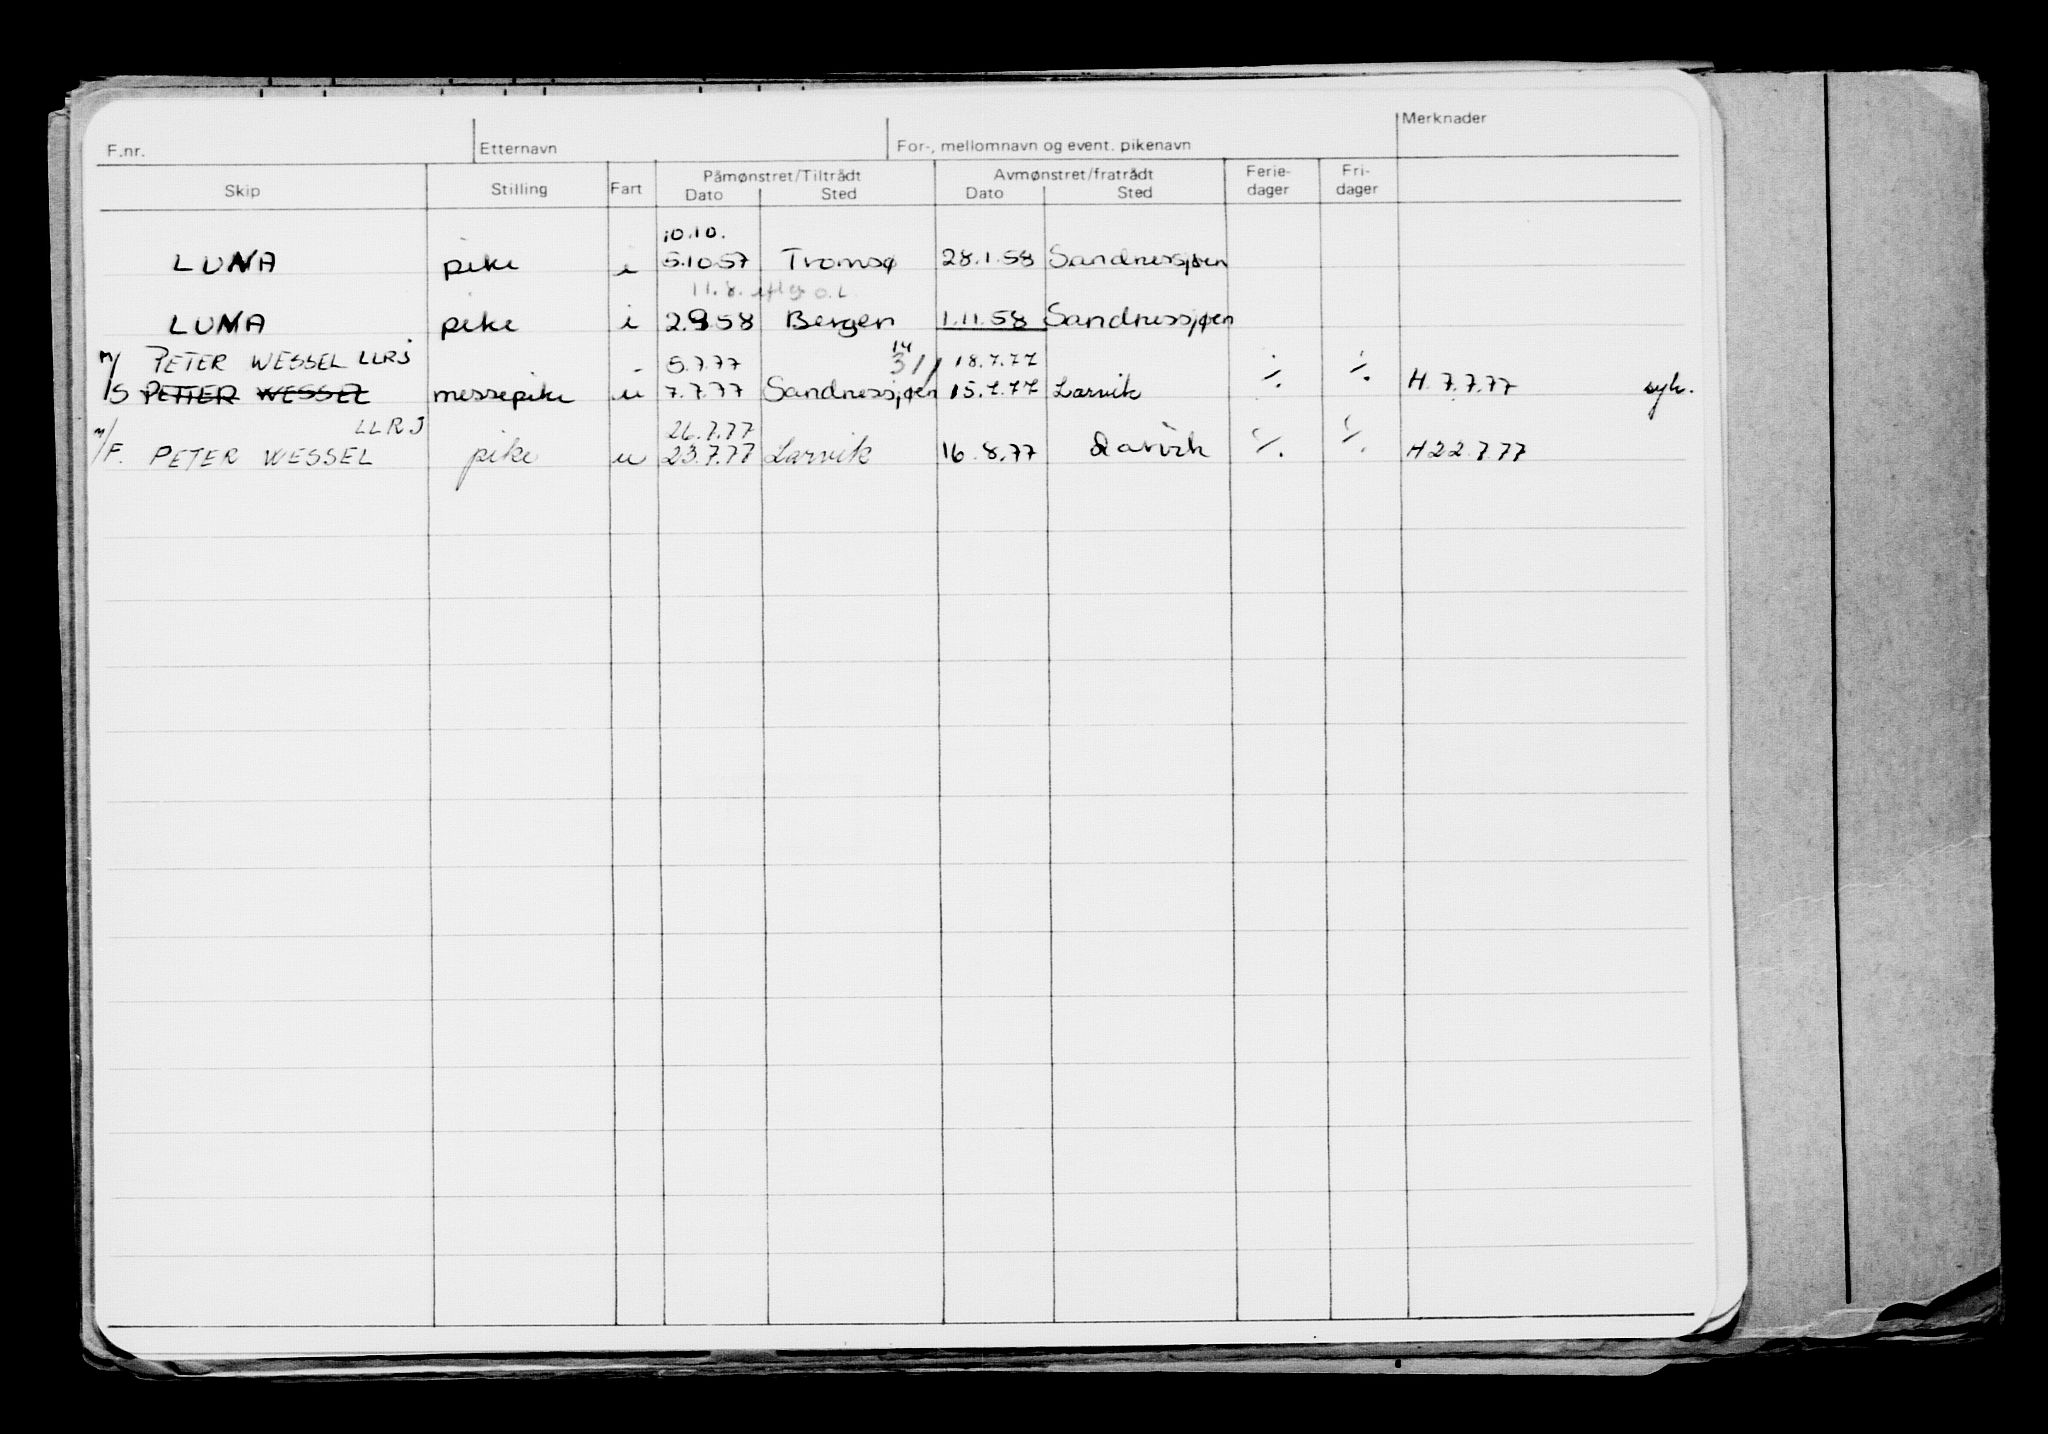 F.nr. Etternavn For-, mellomnavn og event. pikenavn Merknader
Skip Stilling Fart Påmønstret/Tiltrådt Dato Sted Avmønstret/fratrådt Dato Sted Ferie-dager Fri-dager
10.10.
LUNA pike i 5.10.57 Tromsø 28.1.58 Sandnessjøen
LUNA pike i 2.9.58 Bergen 1.11.58 Sandnessjøen
M/ PETER WESSEL LLRJ 5.7.77 14 18.7.77
/S PETTER WESSEL messepike u 7.7.77 Sandnessjøen 15.7.77 Larvik ./. ./. H 7.7.77 syk.
LLRJ 26.7.77
M/F. PETER WESSEL pike u 23.7.77 Larvik 16.8.77 Larvik ./. ./. H 22.7.77